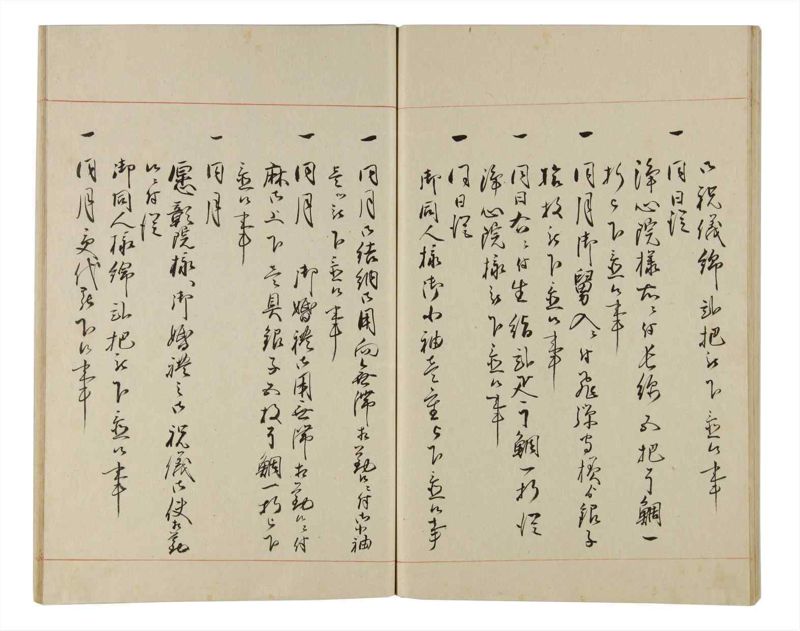 御祝儀綿弐把被下置候事
一 同日従
浄心院様右ニ付長綿五把干鯛一
折被下置候事
一 同月御舅入ニ付飛騨守様ゟ銀子
拾枚被下置候事
一 同日右ニ付生絹弐疋干鯛一折従
浄心院様被下置候事
一 同日従
御同人様御小袖壱重被下置候事
一 同月御結納御用向無滞相勤候ニ付御小袖
壱ツ被下置候事
一 同月 御婚禮御用無滞相勤候ニ付
麻御上下壱具銀子五枚干鯛一折被下
置候事
一 同月
憲彰院様御婚禮之御祝儀御使相勤
候ニ付従
御同人様綿弐把被下置候事
一 同月交代被下候事